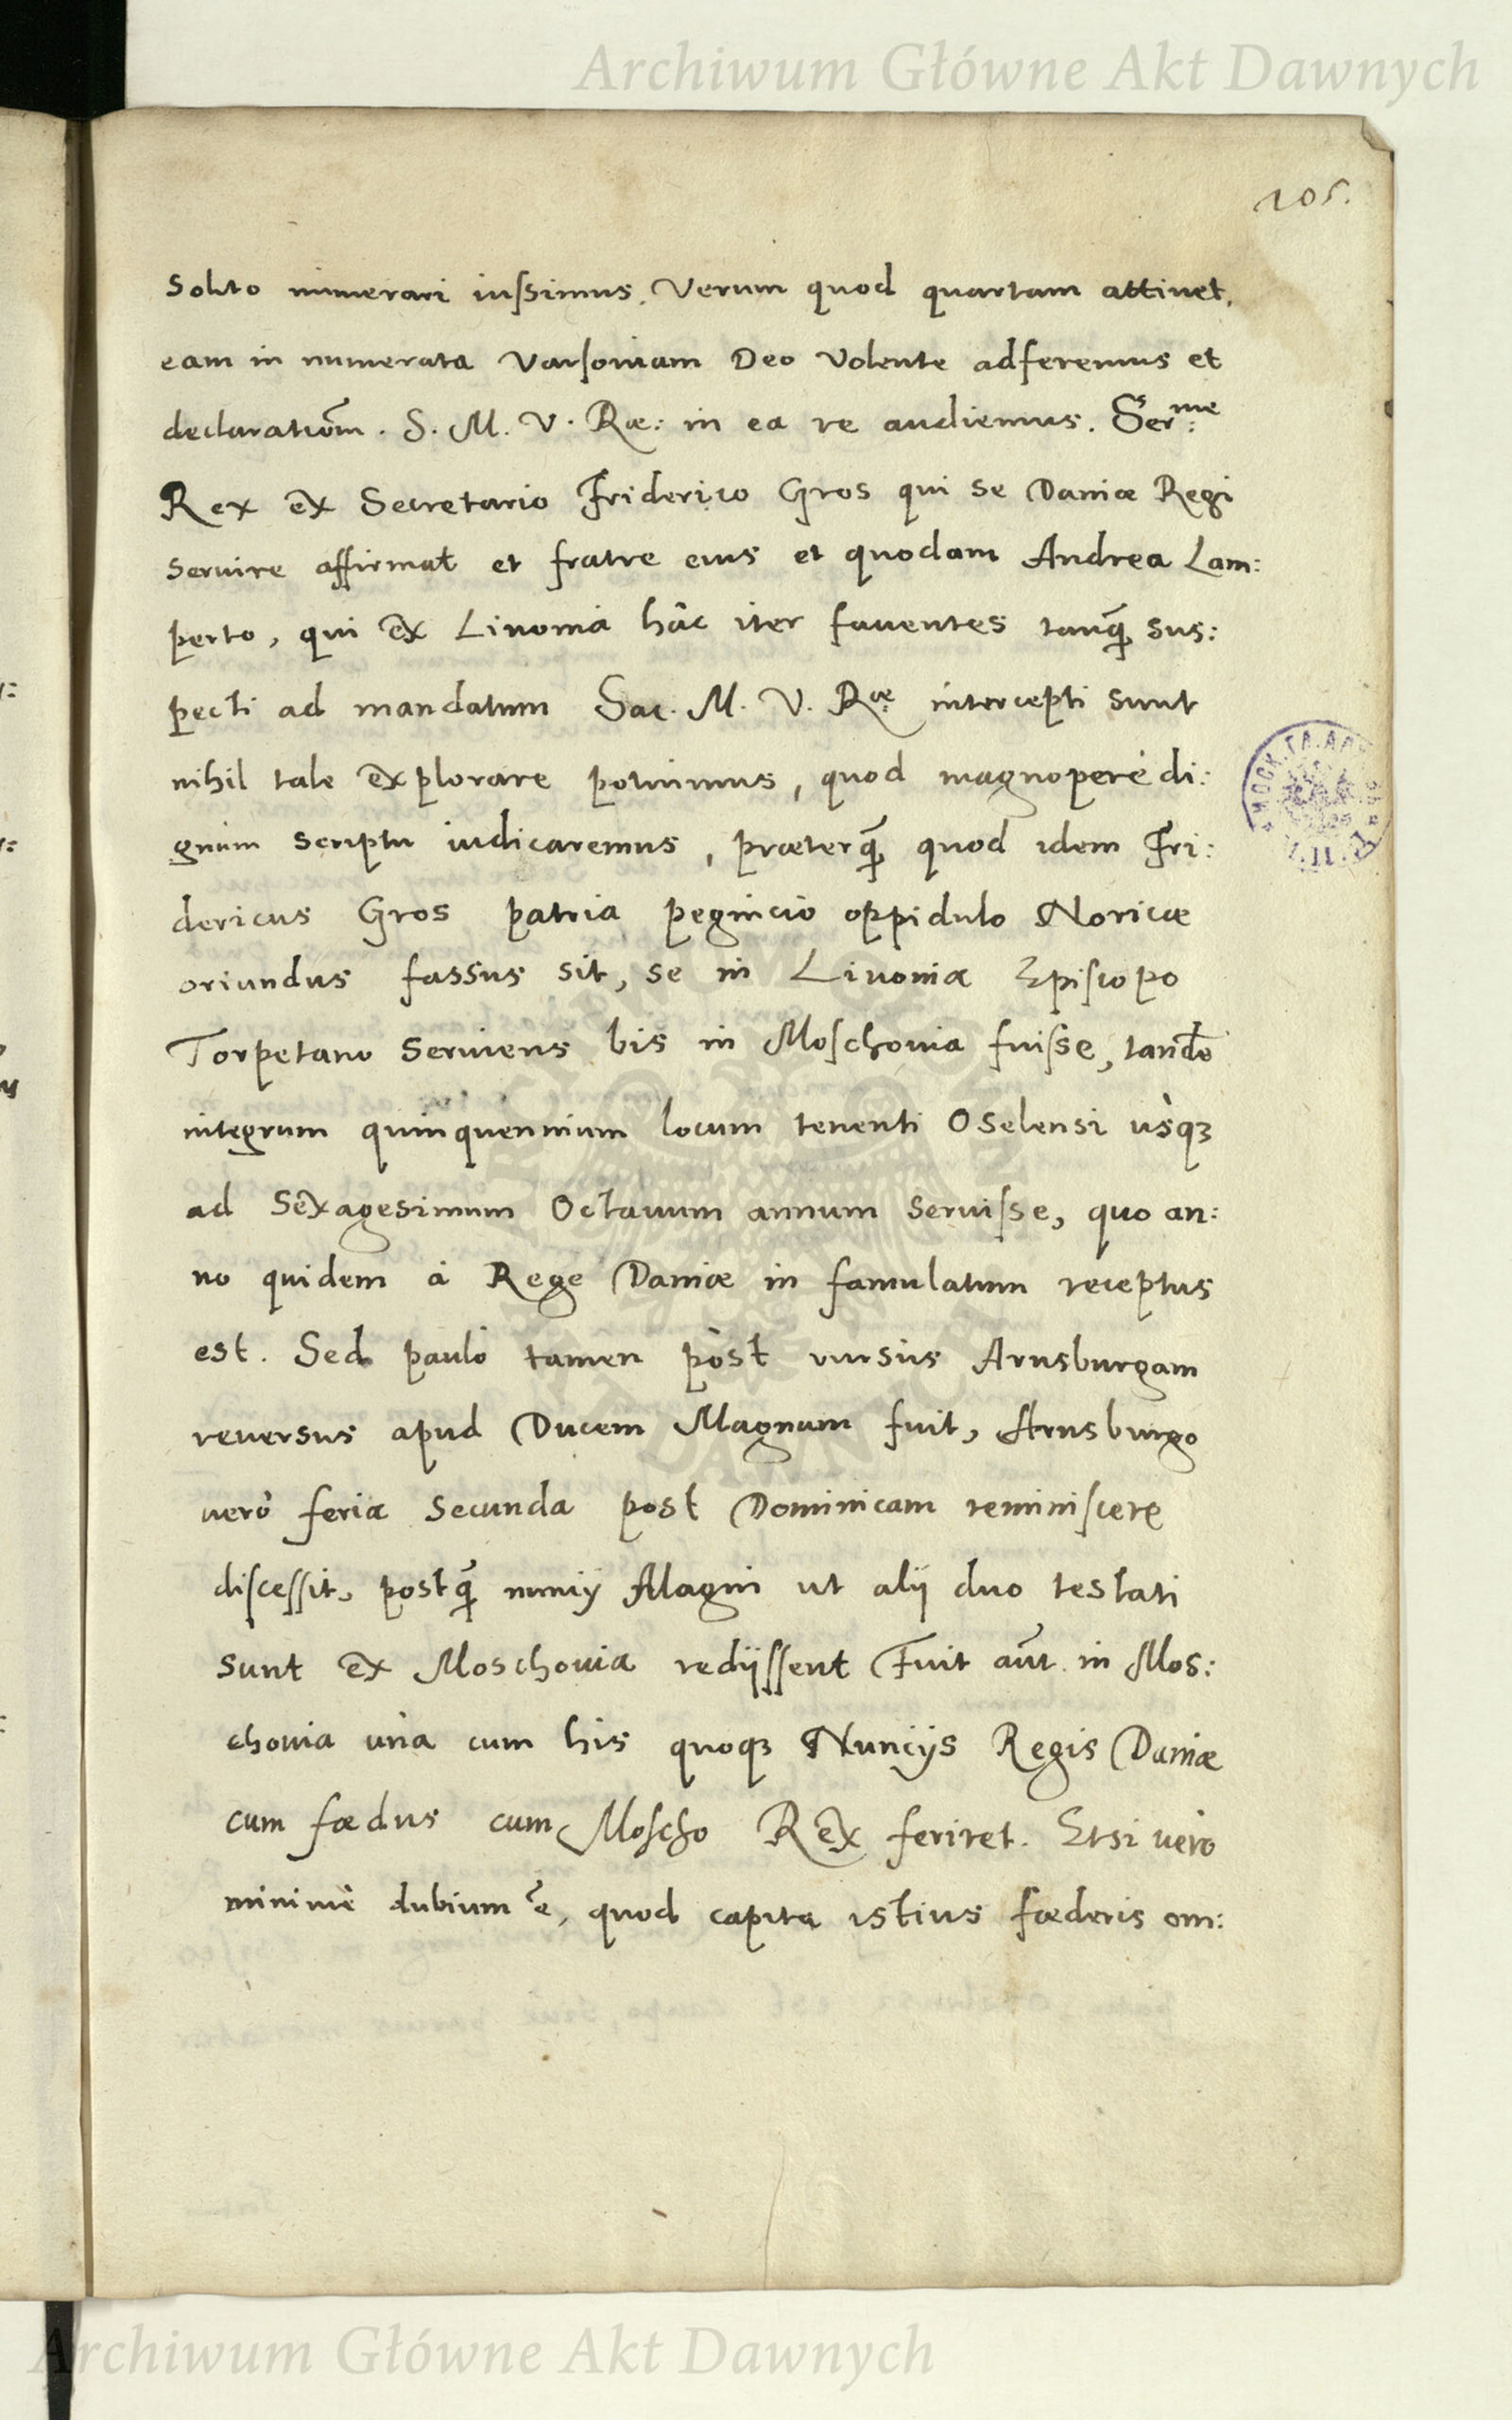 Archiwum Główne Akt Dawnych
105.
solito numerari iussimus. Verum quod quartam attinet,
eam in numerata Varsoviam Deo Volente adferemus et
declaratiõm. S. M. V. Ræ: in ea re audiemus. Ser:me
Rex ex Secretario Friderico Gros qui se Daniæ Regi
seruire affirmat et fratre eius et quodam Andrea Lam:
perto, qui ex Liuonia hâc iter fauentes tanq̃ sus:
pecti ad mandatum Sac. M. V. Ræ intercepti sunt
nihil tale explorare potuimus, quod magnoperè di:
gnum scriptu iudicaremus, præterq̃ quod idem Fri:
dericus Gros patria pegincio oppidulo Noricæ
oriundus fassus sit, se in Liuonia Episcopo
Torpetano seruiens bis in Moschouia fuisse, tandẽ
integrum quinquennium locum tenenti Oselensi usq3
ad sexagesimum Octauum annum seruisse, quo an:
no quidem à Rege Daniæ in famulatum receptus
est. Sed paulò tamen pòst rursùs Arnsburgam
reuersus apud Ducem Magnum fuit, Arnsburgo
uerò feria secunda post Dominicam reminiscere
discessit, postq̃ nuncij Magni ut alij duo testati
sunt ex Moschouia redijssent Fuit aũt in Mos:
chouia unà cum his quoq3 Nuncijs Regis Daniæ
cum fœdus cum Moscho Rex feriret. Etsi uerò
minimè dubium ẽ, quod capita istius fœderis om:
Archiwum Główne Akt Dawnych